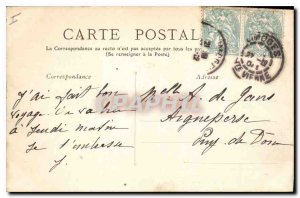 CARTE POSTALE
La Correspondance au recto n'est pas acceptée par tous les
(Se renseigner à la Poste)
Correspondance
Adresse
J'ai fait bon
voyage
à Jeudi matin
Je t'embrasse
J.
Melle A. de Jans
Aigueperse
Puy de Dôme
LIMOGES
Hte VIENNE